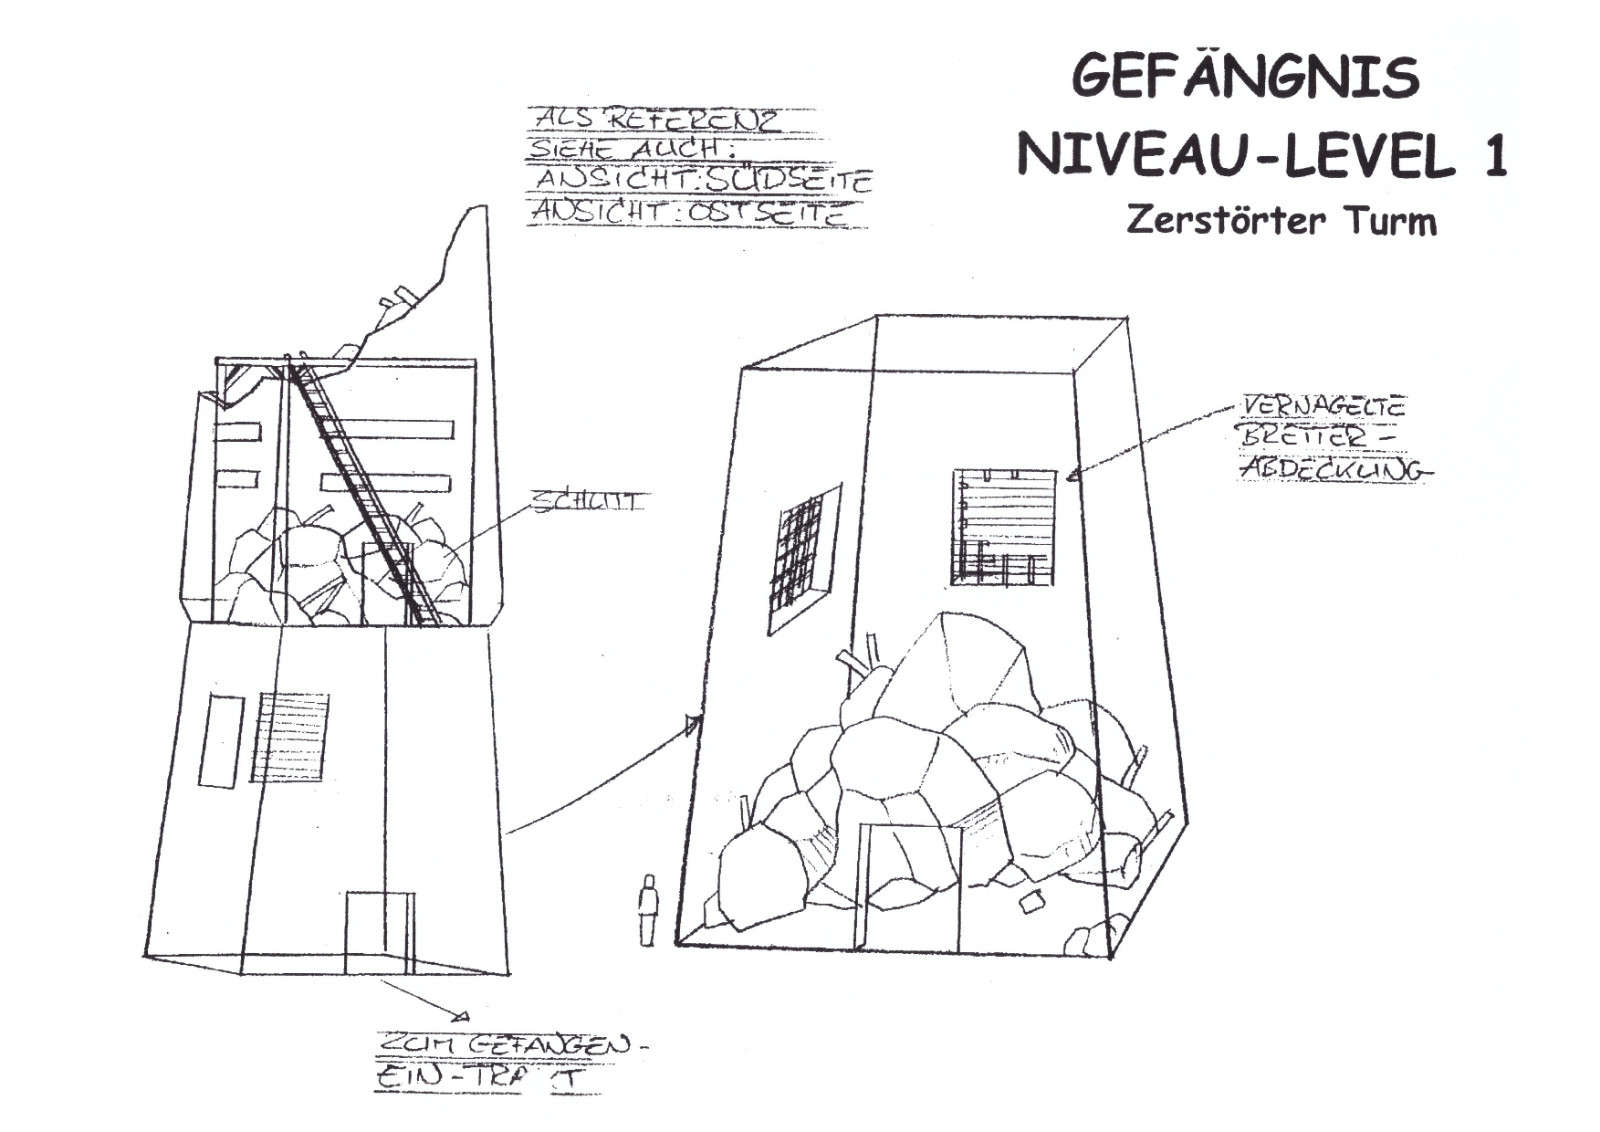 GEFÄNGNIS
NIVEAU-LEVEL 1
Zerstörter Turm
ALS REFERENZ
SIEHE AUCH:
ANSICHT: SÜDSEITE
ANSICHT: OSTSEITE
VERNAGELTE
BRETTER-
ABDECKUNG
SCHUTT
ZUM GEFANGEN-
EIN-TRA T